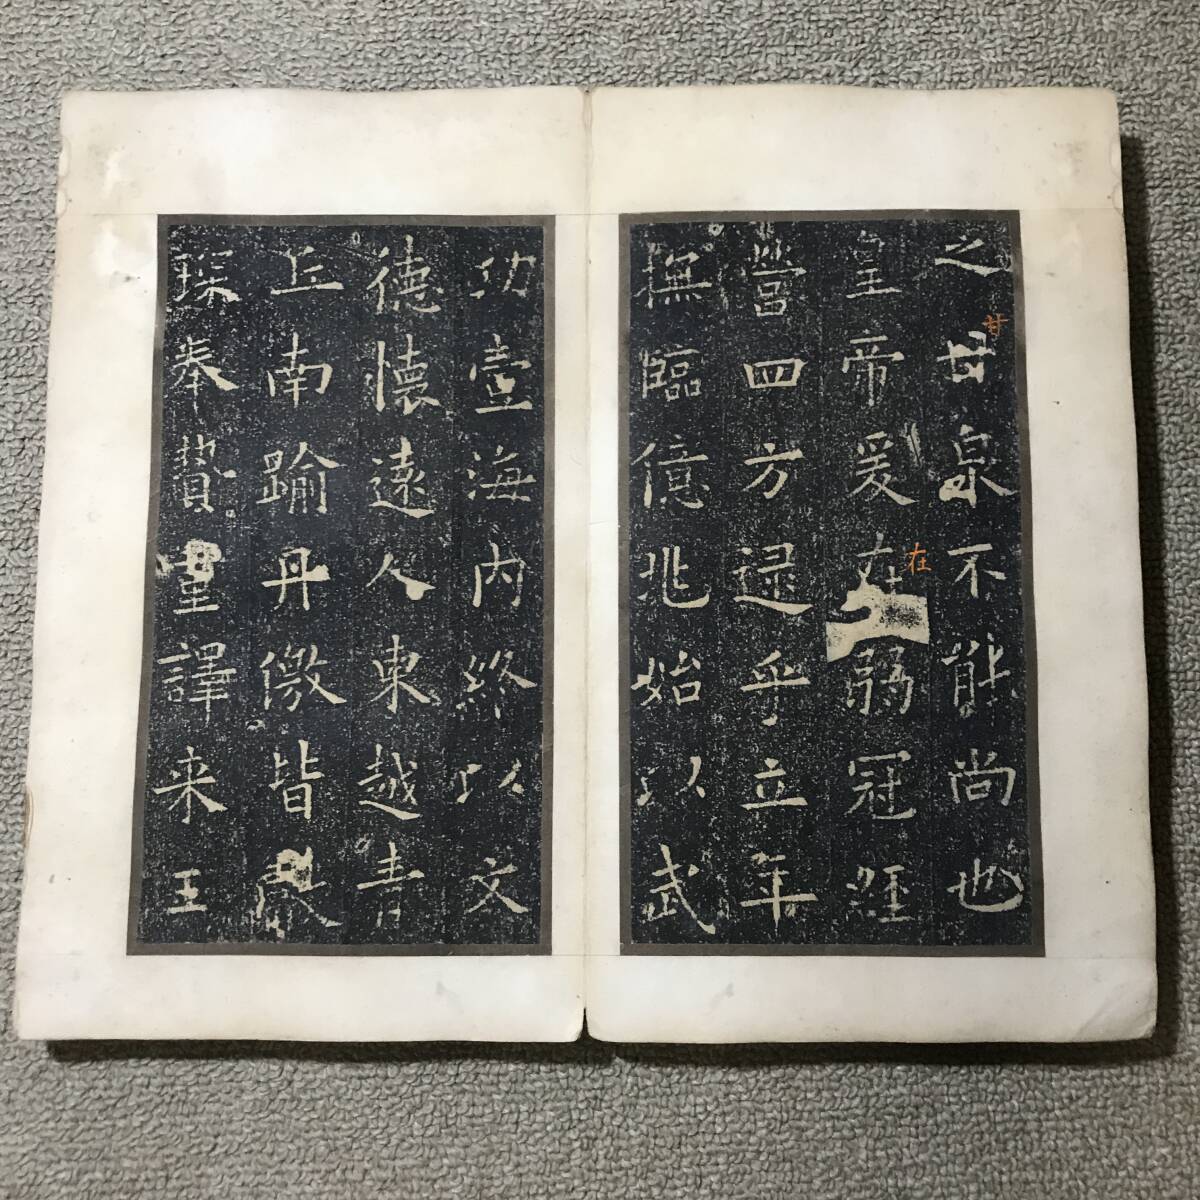 之甘泉不能尚也
甘
皇帝爰在弱冠經
在
營四方逮乎立年
撫臨億兆始以武
功壹海内終以文
德懷遠人東越青
丘南踰丹徼皆獻
琛奉贄重譯来王